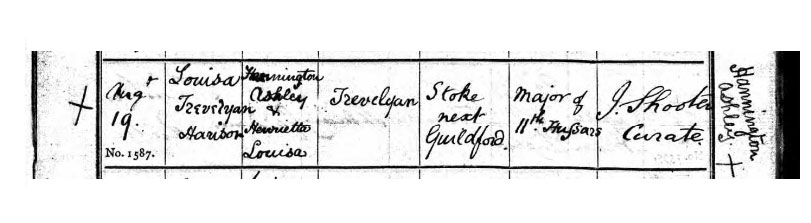 Augt
19.
No. 1587.
Louisa
Trevelyan
Harison
Hannington
Ashley
&
Henrietta
Louisa
Trevelyan
Stoke
next
Guildford.
Major of
11th Hussars
J. Shooter
Curate.
Hannington
Ashley.